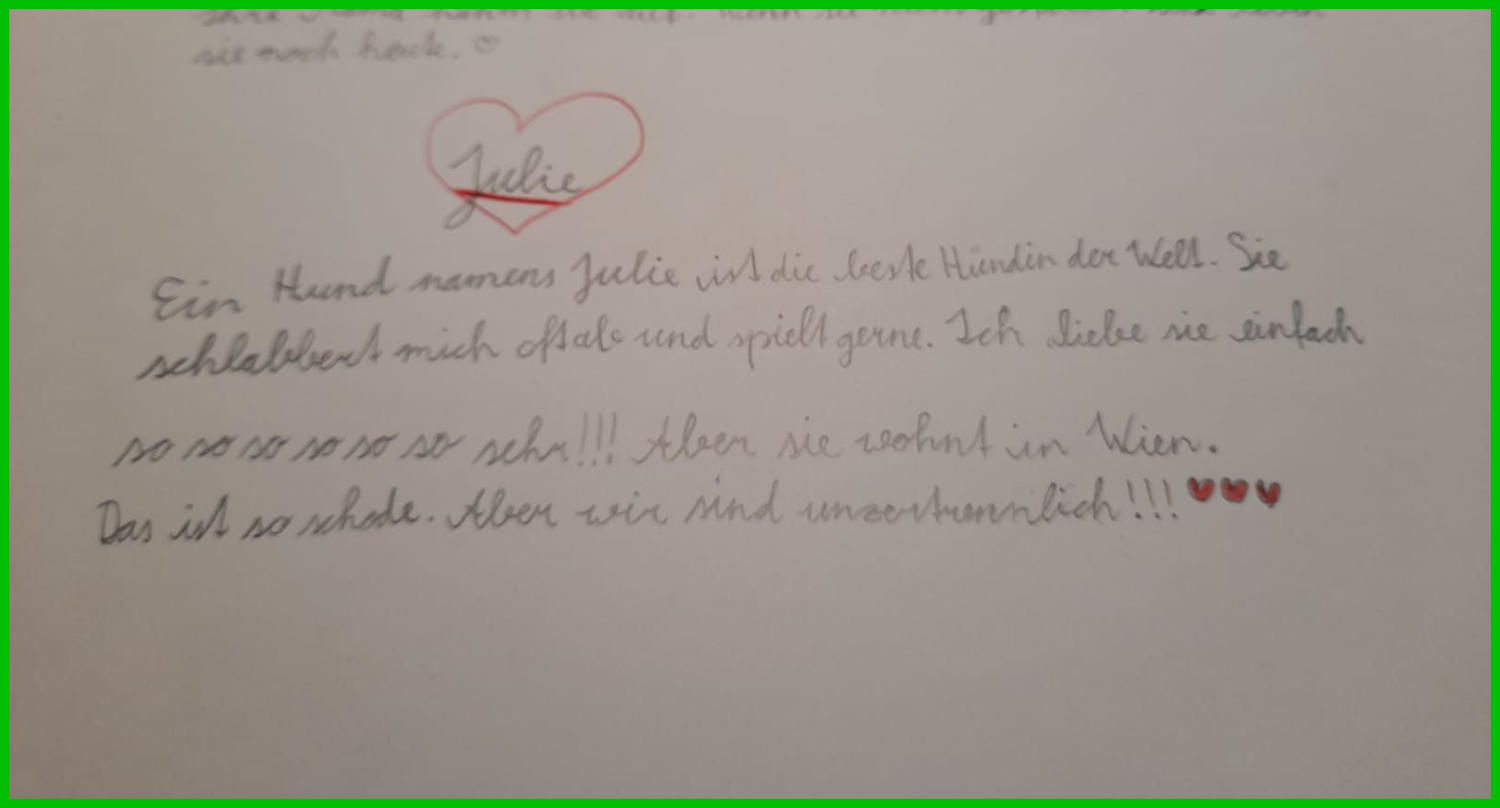 sie noch heute. ♡
Julie
Ein Hund namens Julie ist die beste Hündin der Welt. Sie
schlabbert mich oft ab und spielt gerne. Ich liebe sie einfach
so so so so so so sehr!!! Aber sie wohnt in Wien.
Das ist so schade. Aber wir sind unzertrennlich!!! ♥♥♥